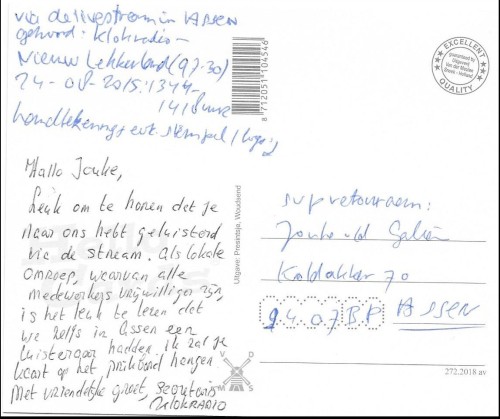 via de livestream in ASSEN
gehoord: Klokradio -
Nieuw Lekkerland (97.30)
24-08-2015: 1344-
1418 uur
handtekening + evt. stempel /
Hallo Jouke,
Leuk om te horen det je
naar ons hebt geluisterd
via de stream. Als lokale
omroep, waarvan alle
medewerkers vrijwilliger zijn,
is het leuk te lezen det
we zelfs in Assen een
luisteraar hadden. Ik zal je
kaart op het prikbord hangen
Met vriendelijke groet, secretaris
KLOKRADIO
8 712051 104546
Uitgave: Presintsje, Woudsend
EXCELLENT
QUALITY
Guaranteed by
Uitgeverij
Van der Meulen
Sneek - Holland
svp retourneren:
Jouke v/d Galiën
Koldakker 70
9407BP ASSEN
V
M S
272.2018 av